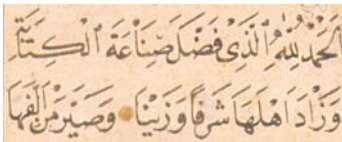 الحَمْدُ لِلّٰهِ الَّذِيْ فَضَّلَ صِنَاعَةَ الْكِتَابَةِ
وَزَادَ اَهْلَهَا شَرَفًا وَزَيْنًا وَصَيَّرَ مَنْ اَلِفَهَا